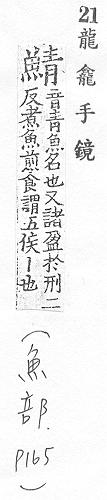 21 龍龕手鏡
鯖音青魚名也又諸盈於刑二
反煮魚煎食謂五侯丨也
(魚部. P165)